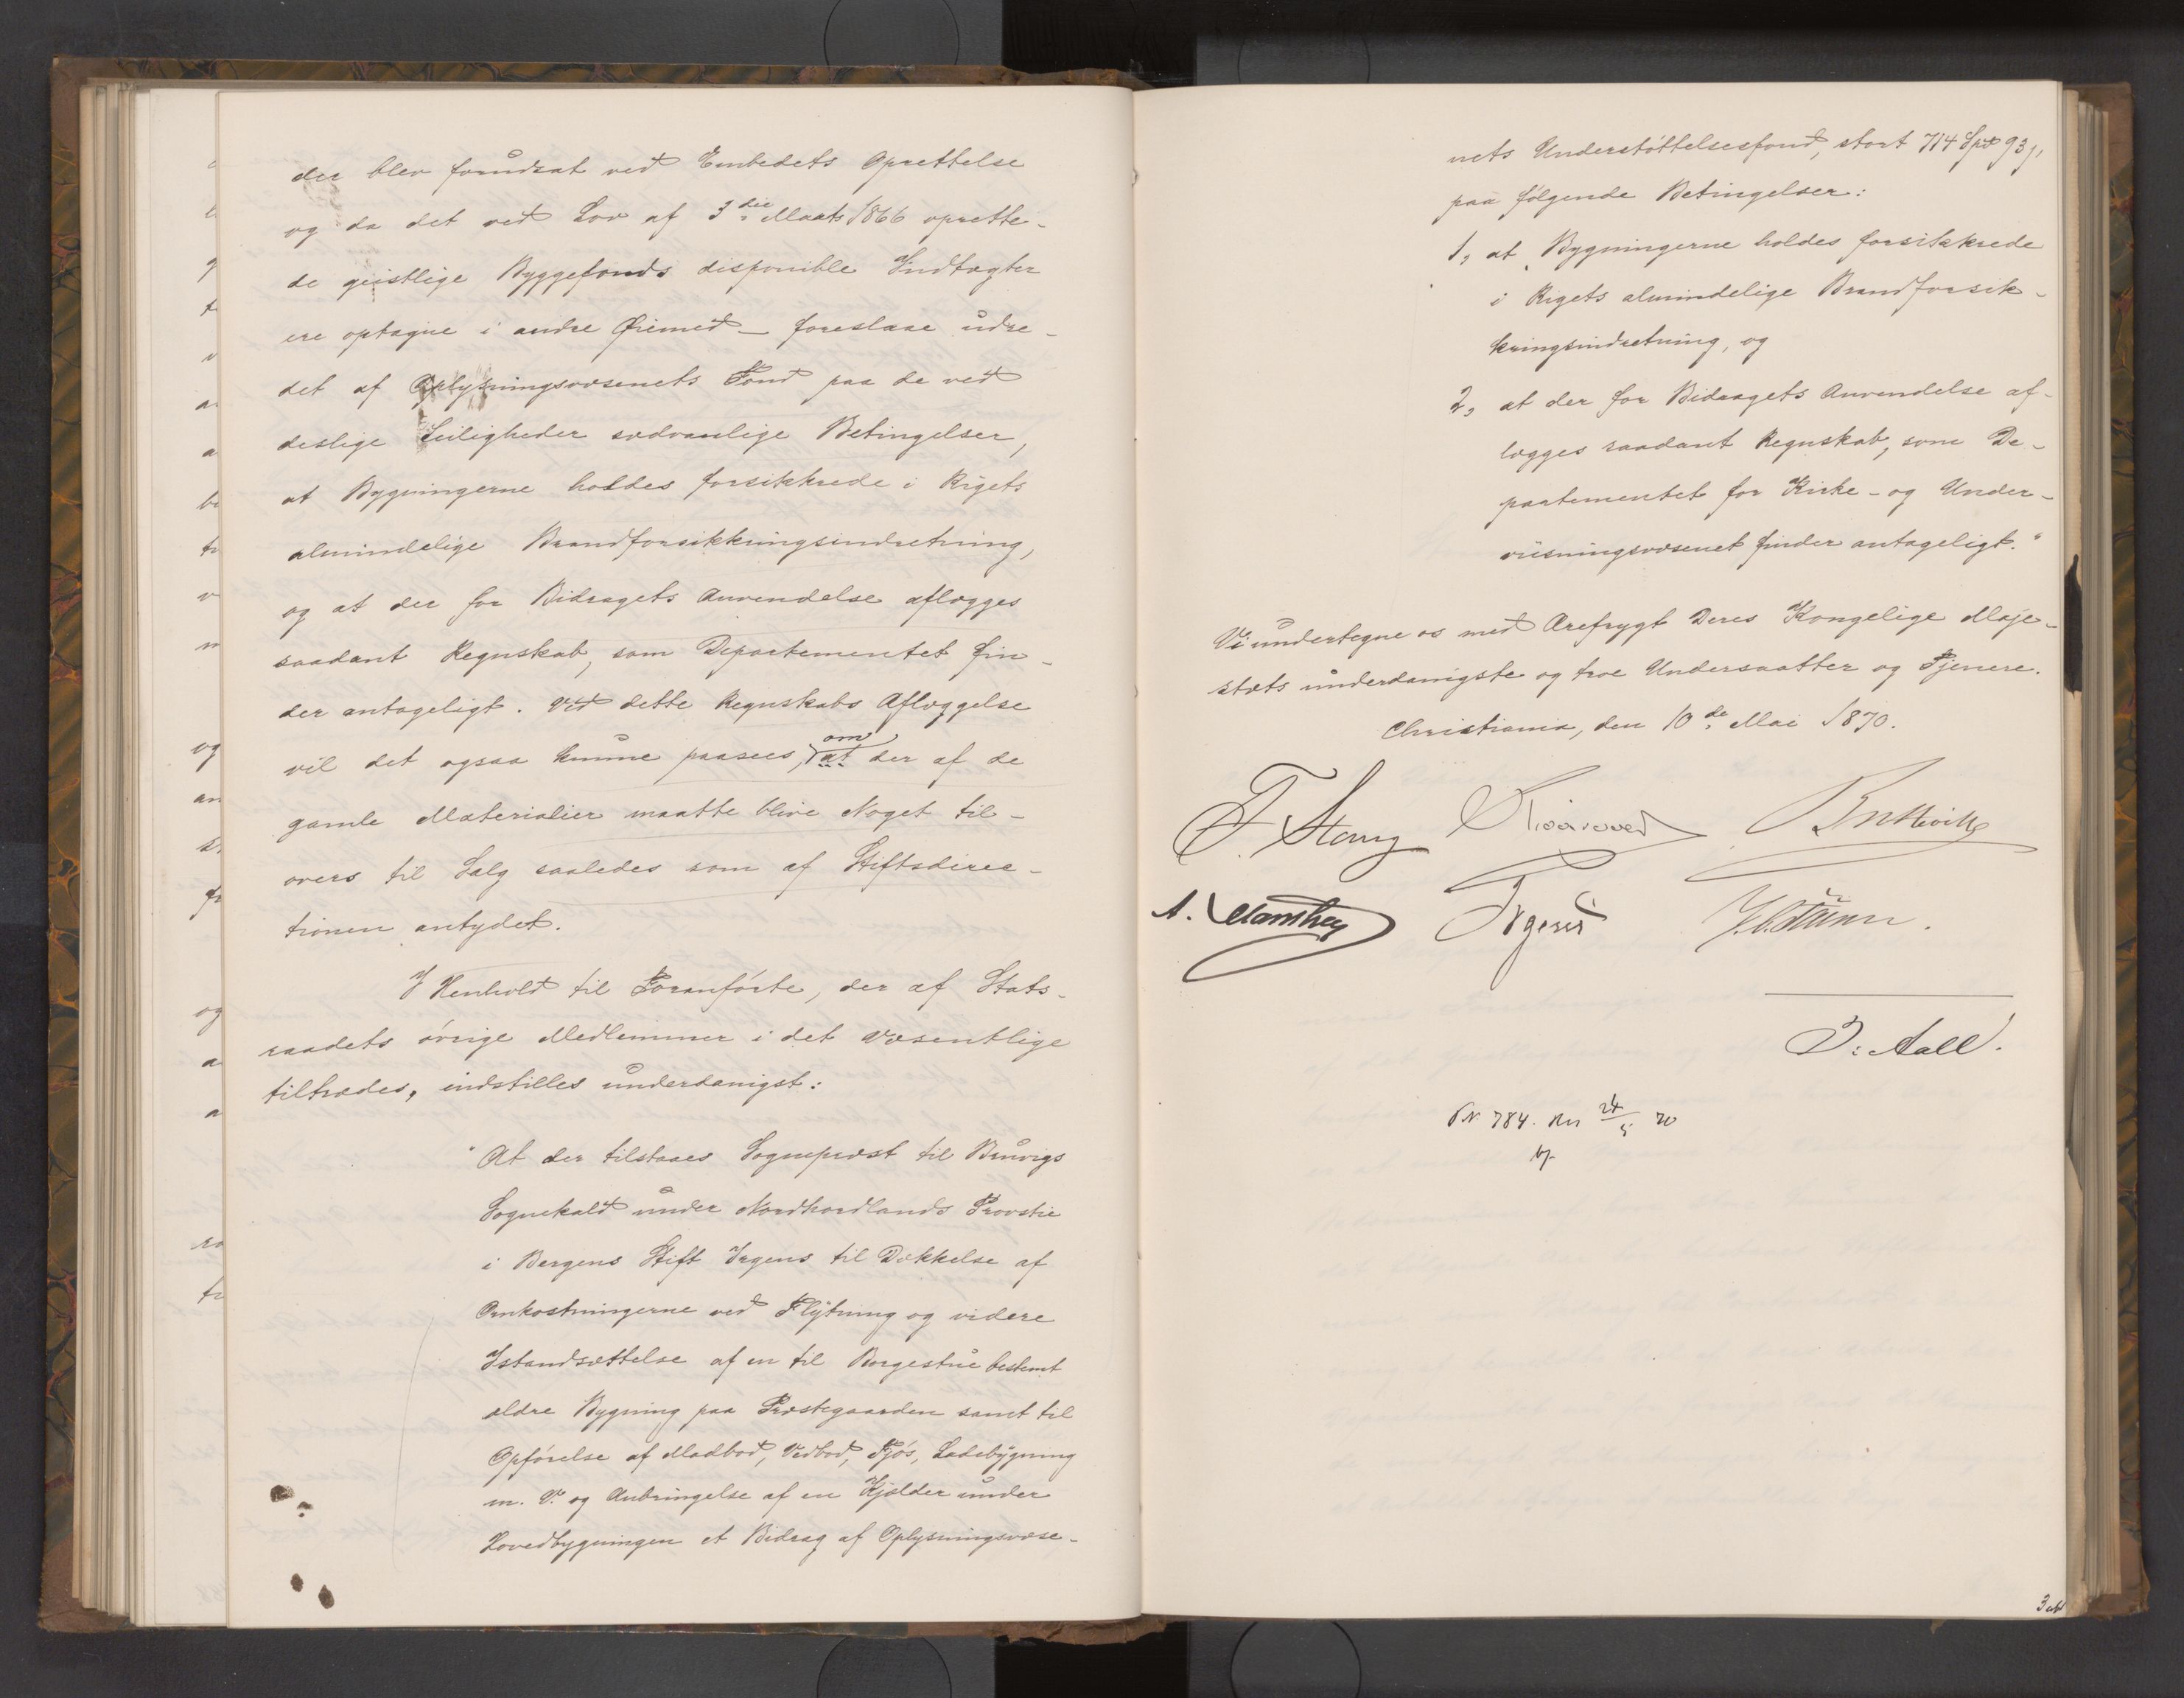 der blev forudsat ved Embedets Oprettelse
og da det ved Lov af 3die Marts 1866 oprette-
de geistlige Byggefonds disponible Indtægter
ere optagne i andre Øiemed – foreslaae udre-
det af Oplysningsvæsenets Fond paa de ved
deslige Leiligheder sædvanlige Betingelser,
at Bygningerne holdes forsikkrede i Rigets
almindelige Brandforsikkringsindretning,
og at der for Bidragets Anvendelse aflægges
saadant Regnskab, som Departementet fin-
der antageligt. Ved dette Regnskabs Aflæggelse
vil det ogsaa kunne paasees, om at der af de
gamle Materialier maatte blive Noget til-
overs til Salg saaledes som af Stiftsdirec-
tionen antydet.
I Henhold til Foranførte, der af Stats-
raadets øvrige Medlemmer i det Væsentlige
tiltrædes, indstilles underdanigst:
"At der tilstaaes Sognepræst til Bruvigs
Sognekald under Nordhordlands Provstie
i Bergens Stift Irgens til Dækkelse af
Omkostningerne ved Flytning og videre
Istandsættelse af en til Borgestue bestemt
ældre Bygning paa Præstegaarden samt til
Opførelse af Madbod, Vedbod, Fjøs, Ladebygning
m. V. og Anbringelse af en Kjælder under
Hovedbygningen et Bidrag af Oplysningsvæse-
nets Understøttelsesfond, stort 714 Spd 93 s,
paa følgende Betingelser:
1, at Bygningerne holdes forsikkrede
i Rigets almindelige Brandforsik-
kringsindretning, og
2, at der for Bidragets Anvendelse af-
lægges saadant Regnskab, som De-
partementet for Kirke- og Under-
viisningsvæsenet finder antageligt."
Vi undertegne os med Ærefrygt Deres Kongelige Maje-
stæts underdanigste og troe Undersaatter og Tjenere.
Christiania, den 10de Mai 1870.
F. Stang
A. Manthey Irgens
J. Aall.
784. 24/5 70